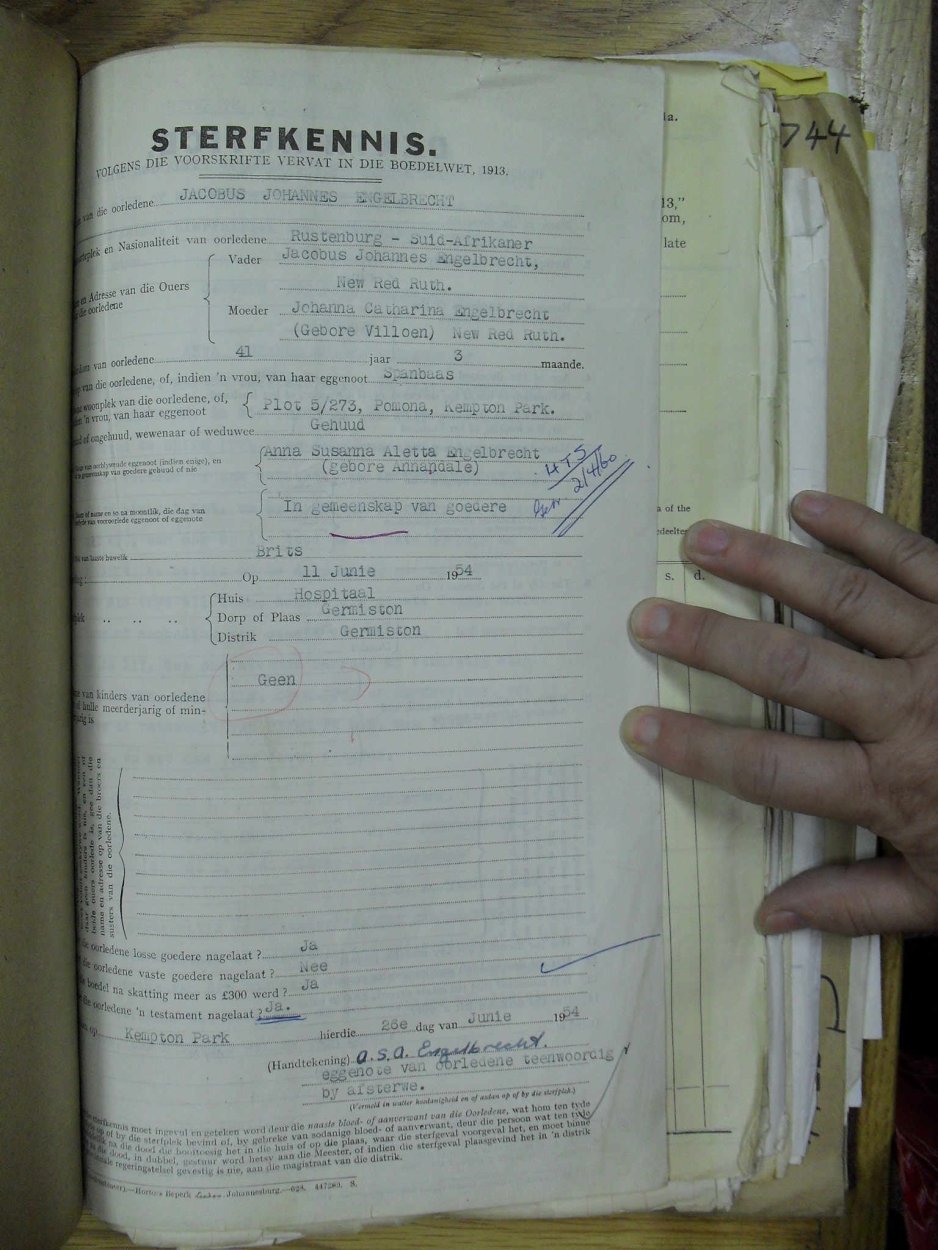 744
STERFKENNIS.
VOLGENS DIE VOORSKRIFTE VERVAT IN DIE BOEDELWET, 1913.
van die oorledene JACOBUS JOHANNES ENGELBRECHT
en Nasionaliteit van oorledene Rustenburg - Suid-Afrikaner
Vader Jacobus Johannes Engelbrecht,
New Red Ruth.
en Adresse van die Ouers
die oorledene
Moeder Johanna Catharina Engelbrecht
(Gebore Villoen) New Red Ruth.
van oorledene 41 jaar 3 maande.
van die oorledene, of, indien 'n vrou, van haar eggenoot Spanbaas
woonplek van die oorledene, of,
'n vrou, van haar eggenoot
Plot 5/273, Pomona, Kempton Park.
of ongehuud, wewenaar of weduwee Gehuud
van oorblywende eggenoot (indien enige), en
in gemeenskap van goedere gehuud of nie
Anna Susanna Aletta Engelbrecht
(gebore Annandale)
HTS
2/4/60
name en so na moontlik, die dag van
van vooroorlede eggenoot of eggenote
In gemeenskap van goedere
van laaste huwelik Brits
Op 11 Junie 1954
Huis Hospitaal
Dorp of Plaas Germiston
Distrik Germiston
Geen
van kinders van oorledene
of hulle meerderjarig of min-
is
daar geen kinders is nie, en een of
beide ouers oorlede is, gee dan die
name en adresse op van die broers en
susters van die oorledene.
die oorledene losse goedere nagelaat ? Ja
die oorledene vaste goedere nagelaat ? Nee
boedel na skatting meer as £300 werd ? Ja
die oorledene 'n testament nagelaat ? Ja.
op Kempton Park hierdie 26e dag van Junie 1954
(Handtekening) A.S.A. Engelbrecht.
eggenote van oorledene teenwoordig
by afsterwe.
(Vermeld in watter hoedanigheid en of aldan op of by die sterfplek.)
sterfkennis moet ingevul en geteken word deur die naaste bloed- of aanverwant van die Oorledene, wat hom ten tyde
op of by die sterfplek bevind of, by gebreke van sodanige bloed- of aanverwant, deur die persoon wat ten tyde
na die dood die hooftoesig het in die huis of op die plaas, waar die sterfgeval voorgeval het, en moet binne
die dood, in dubbel, gestuur word hetsy aan die Meester, of indien die sterfgeval plaasgevind het in 'n distrik
regeringstelsel gevestig is nie, aan die magistraat van die distrik.
Beperk Johannesburg.—624. 447263. S.
la.
13,"
om,
late
of the
s. d.